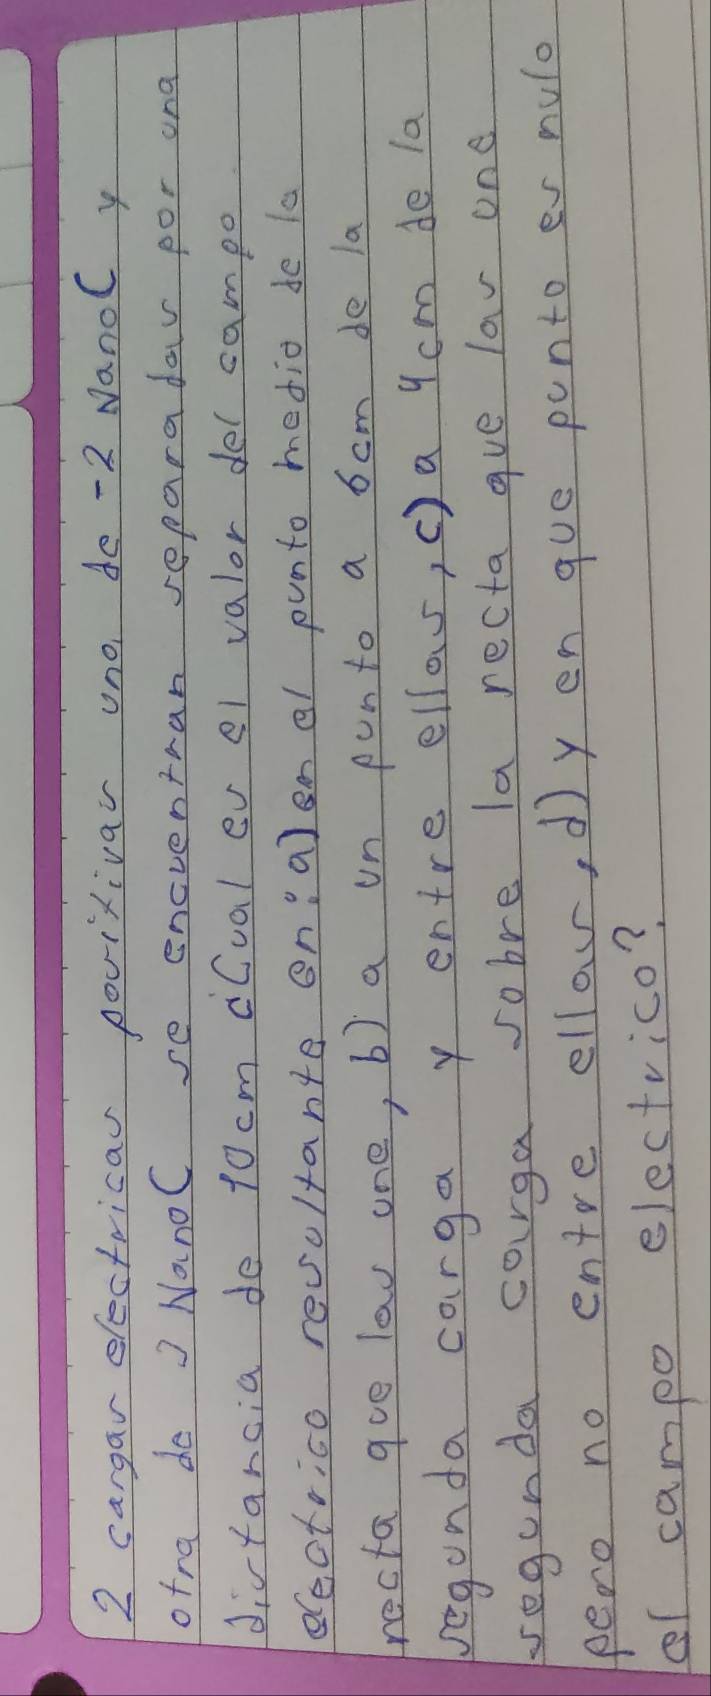 2 cargas electricas positivas una de -2 NanoC y
otra de 3 NanoC se encuentran separadas por una
distancia de 10cm ¿Cual es el valor del campo
electrico resultante en: a) en el punto medio de la
recta que las une, b) a un punto a 6cm de la
segunda carga y entre ellas, c) a 4cm de la
segunda carga sobre la recta que las une
pero no entre ellas, d) y en que punto es nulo
el campo electrico?